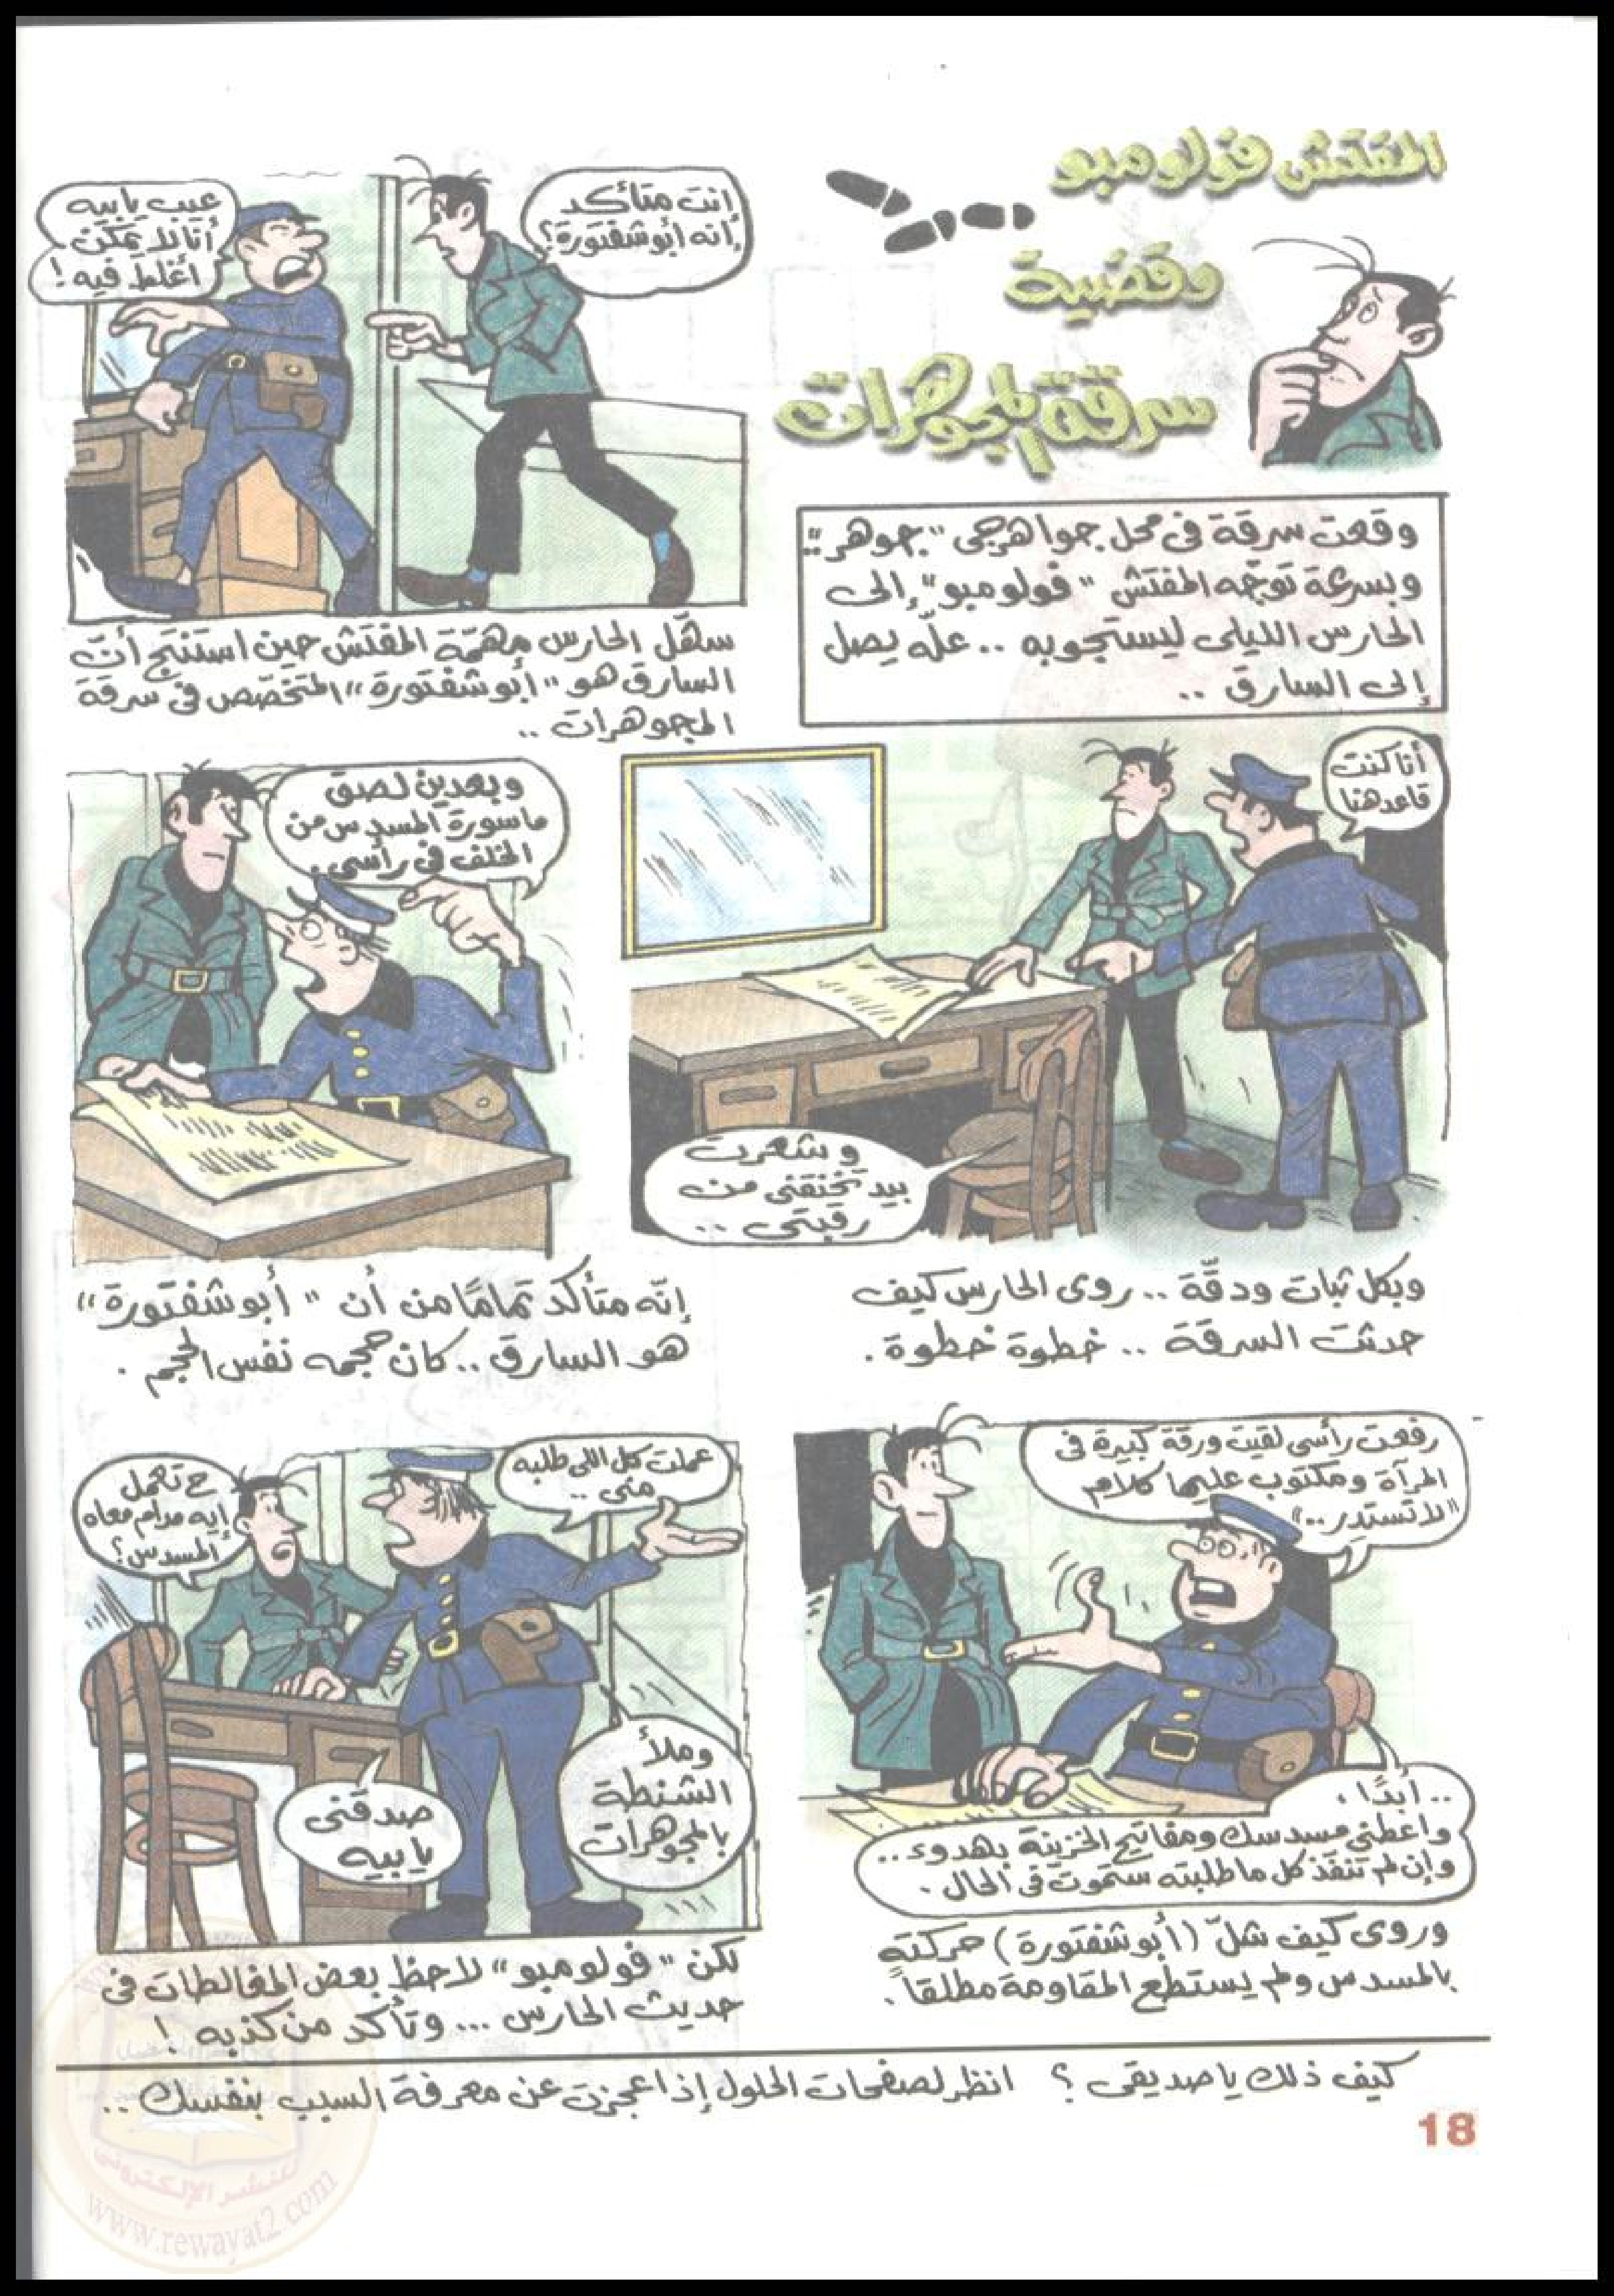 المفتش فولومبو
وقضية
سرقة المجوهرات
وقعت سرقة فى محل جواهرجى "جوهر"..
وبسرعة توجّه المفتش "فولومبو" إلى
الحارس الليلى ليستجوبه .. علّه يصل
إلى السارق ..
إنت متأكد
إنه أبو شفتورة؟
عيب يا بيه
أنا لا يمكن
أغلط فيه!
سهّل الحارس مهمّة المفتش حين استنتج أن
السارق هو "أبو شفتورة" المتخصّص فى سرقة
المجوهرات ..
أنا كنت
قاعد هنا
وشعرت
بيد تخنقنى من
رقبتى ..
وبكل ثبات ودقّة .. روى الحارس كيف
حدثت السرقة .. خطوة خطوة .
وبعدين لصق
ماسورة المسدس من
الخلف فى رأسى .
إنّه متأكد تمامًا من أن "أبو شفتورة"
هو السارق .. كان حجمه نفس الحجم .
رفعت رأسى لقيت ورقة كبيرة فى
المرآة ومكتوب عليها كلام
"لا تستدر .."
.. أبدًا ،
واعطنى مسدسك ومفاتيح الخزينة بهدوء ..
وإن لم تنفذ كل ما طلبته ستموت فى الحال .
وروى كيف شلّ (أبو شفتورة) حركته
بالمسدس ولم يستطع المقاومة مطلقاً .
عملت كل اللى طلبه
منى ..
ح تعمل
إيه مادام معاه
المسدس؟
وملأ
الشنطة
بالمجوهرات
صدقنى
يا بيه
لكن "فولومبو" لاحظ بعض المغالطات فى
حديث الحارس ... وتأكد من كذبه !
كيف ذلك يا صديقى ؟ انظر لصفحات الحلول إذا عجزت عن معرفة السبب بنفسك ..
18
للنشر الإلكترونى
www.rewayat2.com